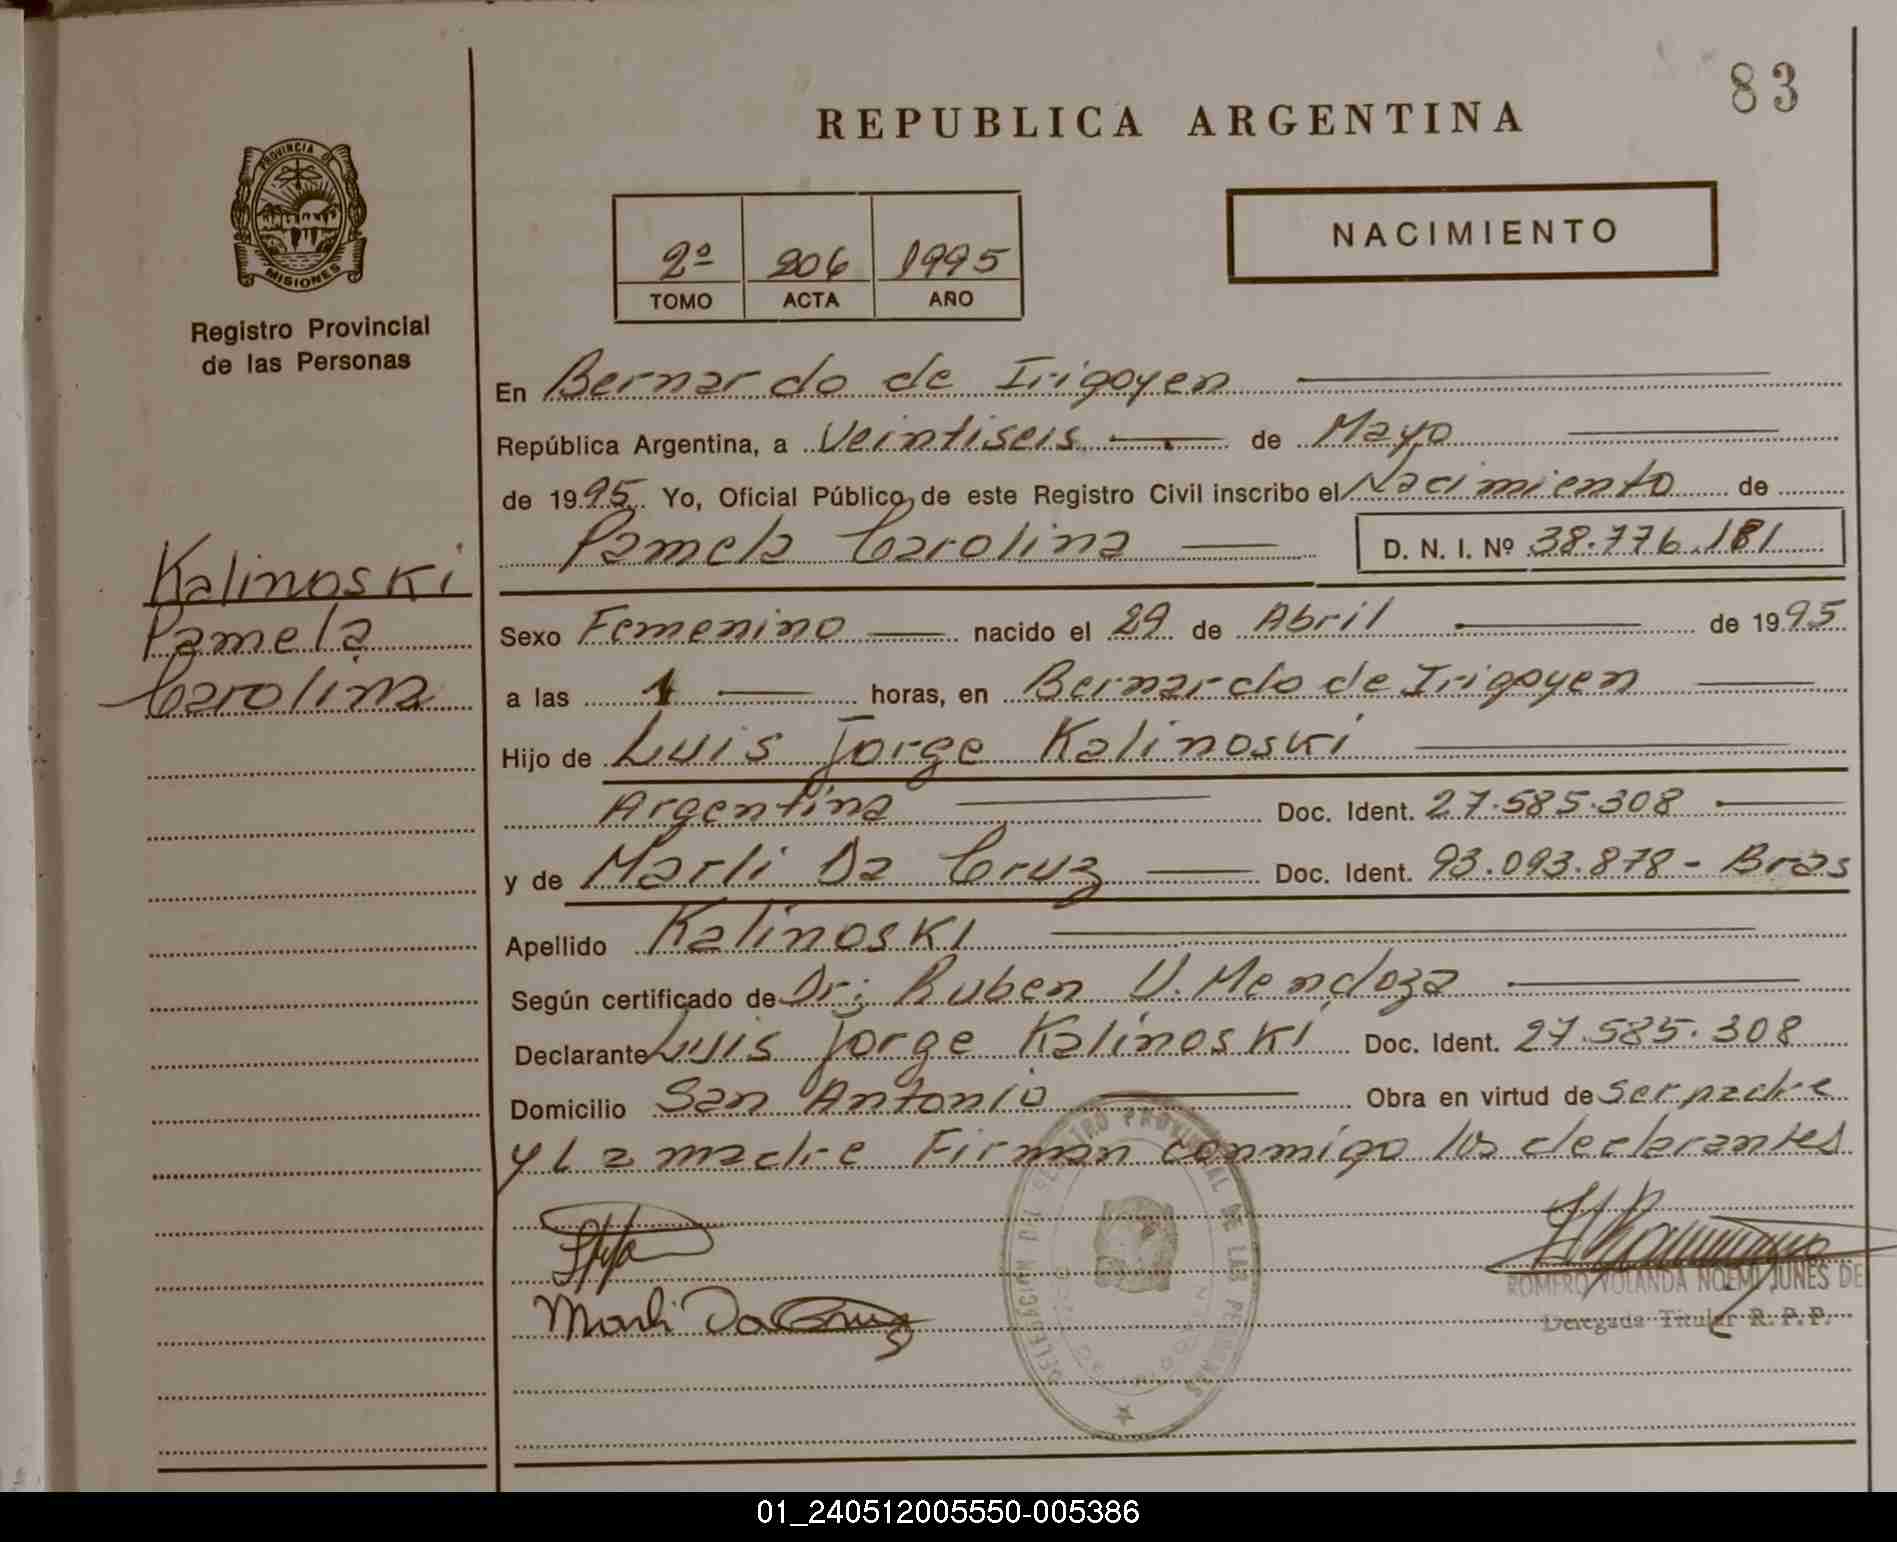 83
REPUBLICA ARGENTINA
PROVINCIA DE
MISIONES
Registro Provincial
de las Personas
2º 206 1995
TOMO ACTA AÑO
NACIMIENTO
En Bernardo de Irigoyen
República Argentina, a Veintiseis de Mayo
de 1995 Yo, Oficial Público, de este Registro Civil inscribo el Nacimiento de
Pamela Carolina D. N. I. Nº 38.776.181
Kalinoski
Pamela
Carolina
Sexo Femenino nacido el 29 de Abril de 1995
a las 1 horas, en Bernardo de Irigoyen
Hijo de Luis Jorge Kalinoski
Argentina Doc. Ident. 27.585.308
y de Marli Da Cruz Doc. Ident. 93.093.878 - Bras
Apellido Kalinoski
Según certificado de Dr: Ruben V. Mendoza
Declarante Luis Jorge Kalinoski Doc. Ident. 27.585.308
Domicilio San Antonio Obra en virtud de ser padre
y La madre Firman conmigo los declarantes
Marli Da Cruz
DELEGACION DEL REGISTRO PROVINCIAL DE LAS PERSONAS
ROMERO YOLANDA NOEMI JUNES DE
Delegada Titular R. P. P.
01_240512005550-005386